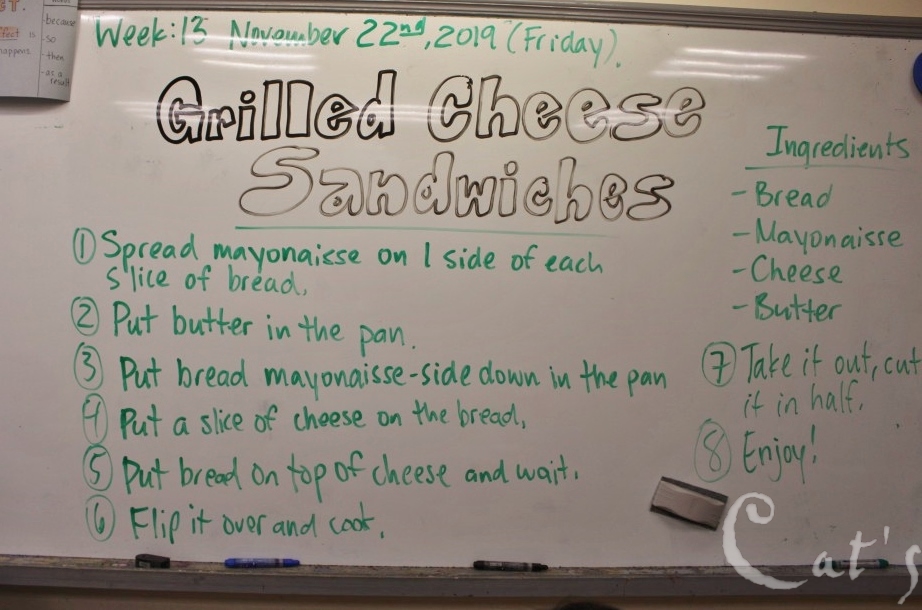 ET.
because
effect is
so
happens
then
as a
result
Week:13 November 22nd, 2019 (Friday).
Grilled Cheese
Sandwiches
① Spread mayonaisse on 1 side of each
slice of bread.
② Put butter in the pan.
③ Put bread mayonaisse-side down in the pan
④ Put a slice of cheese on the bread.
⑤ Put bread on top of cheese and wait.
⑥ Flip it over and cook.
Ingredients
- Bread
- Mayonaisse
- Cheese
- Butter
⑦ Take it out, cut
it in half.
⑧ Enjoy!
Cat's